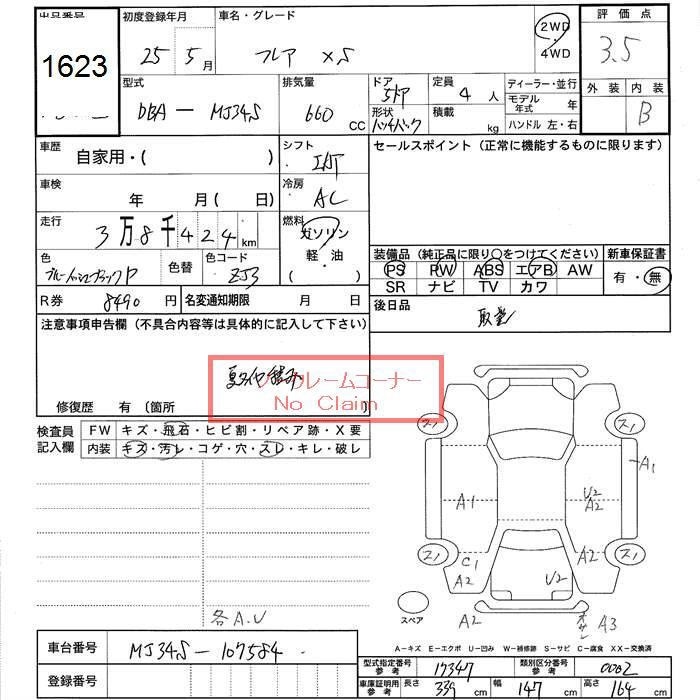 出品番号 初度登録年月 車名・グレード 評価点
1623 25 5月 フレア XS 2WD・4WD 3.5
型式 排気量 ドア 定員 ディーラー・並行 外装 内装
DBA-MJ34S 660CC 5ドア 4人 モデル年式 年 B
形状 ハッチバック 積載 kg ハンドル 左・右
車歴 自家用・( ) シフト IAT セールスポイント (正常に機能するものに限ります)
車検 年 月(日) 冷房 AC
走行 3万8千424km 燃料 ガソリン・軽油( )
装備品 (純正品に限り○をつけてください) 新車保証書
色 色替 色コード ZJ3 PS PW ABS エアB AW 有・無
SR ナビ TV カワ
R券 8490円 名変通知期限 月 日 後日品 取説
注意事項申告欄 (不具合内容等は具体的に記入して下さい)
夏タイヤ積み
ノークレームコーナー
No Claim
修復歴 有 〔箇所
検査員 FW キズ・飛石・ヒビ割・リペア跡・X要
記入欄 内装 キズ・汚レ・コゲ・穴・スレ・キレ・破レ
スノ スノ
A1
A1 U2 A2
スノ C1 A2 A2 スノ
U2
スペア A2 A3
各A.U
A-キズ E-エクボ U-凹み W-補修跡 S-サビ C-腐食 XX-交換済
車台番号 MJ34S-107584
型式指定番号 参考 17347 類別区分番号 参考 0002
登録番号 車庫証明用 参考 長さ 339cm 幅 147cm 高さ 164cm